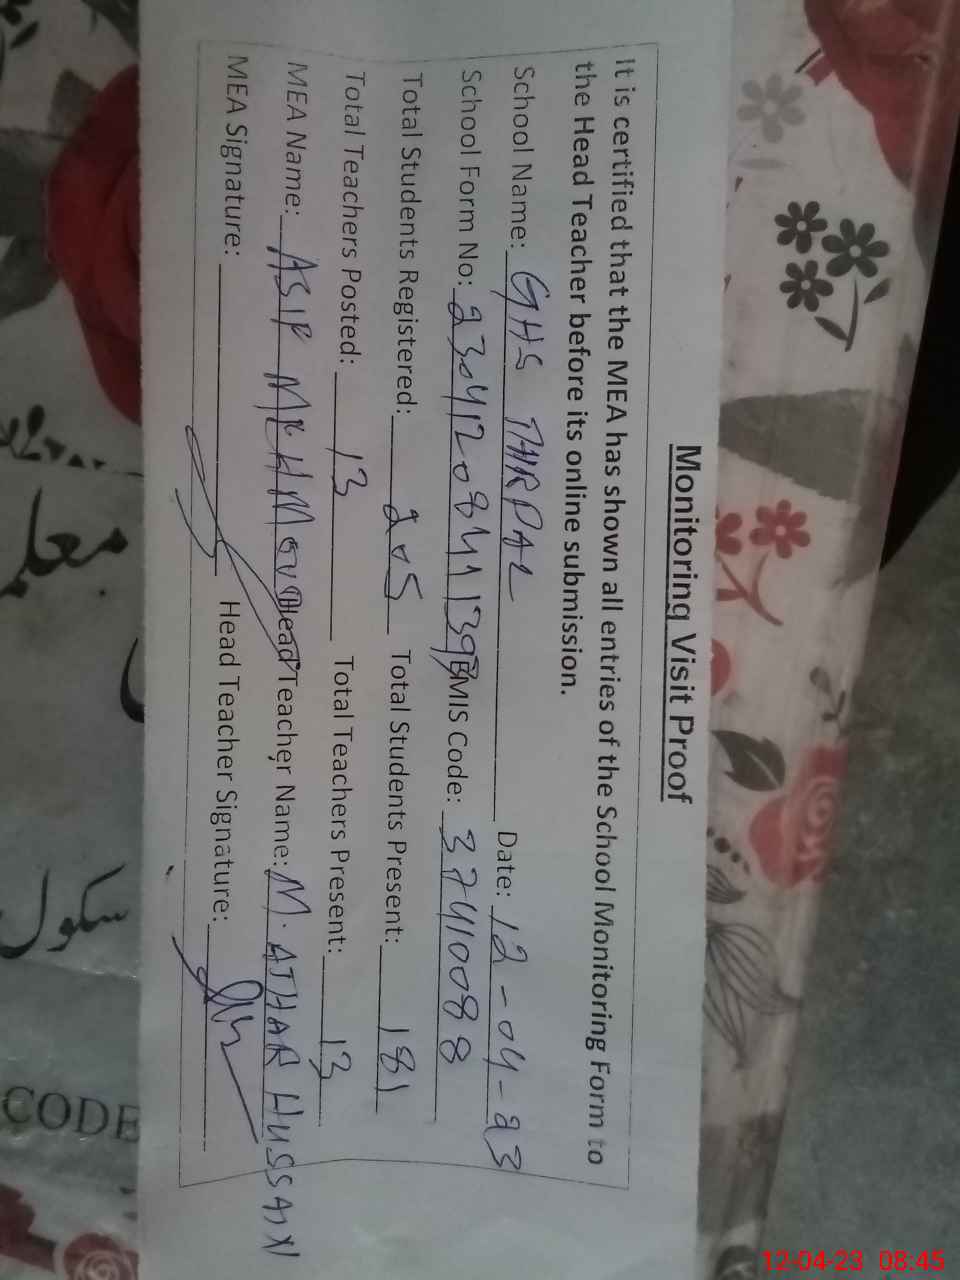 Monitoring Visit Proof
It is certified that the MEA has shown all entries of the School Monitoring Form to
the Head Teacher before its online submission.
School Name: GHS THRPAL Date: 12-04-23
School Form No: 230412084113 EMIS Code: 37410088
Total Students Registered: 205 Total Students Present: 181
Total Teachers Posted: 13 Total Teachers Present: 13
MEA Name: ASIF MEHMOOD Head Teacher Name: M. ATHAR HUSSAIN
MEA Signature: Head Teacher Signature:
معلم
سکول
CODE
12-04-23 08:45